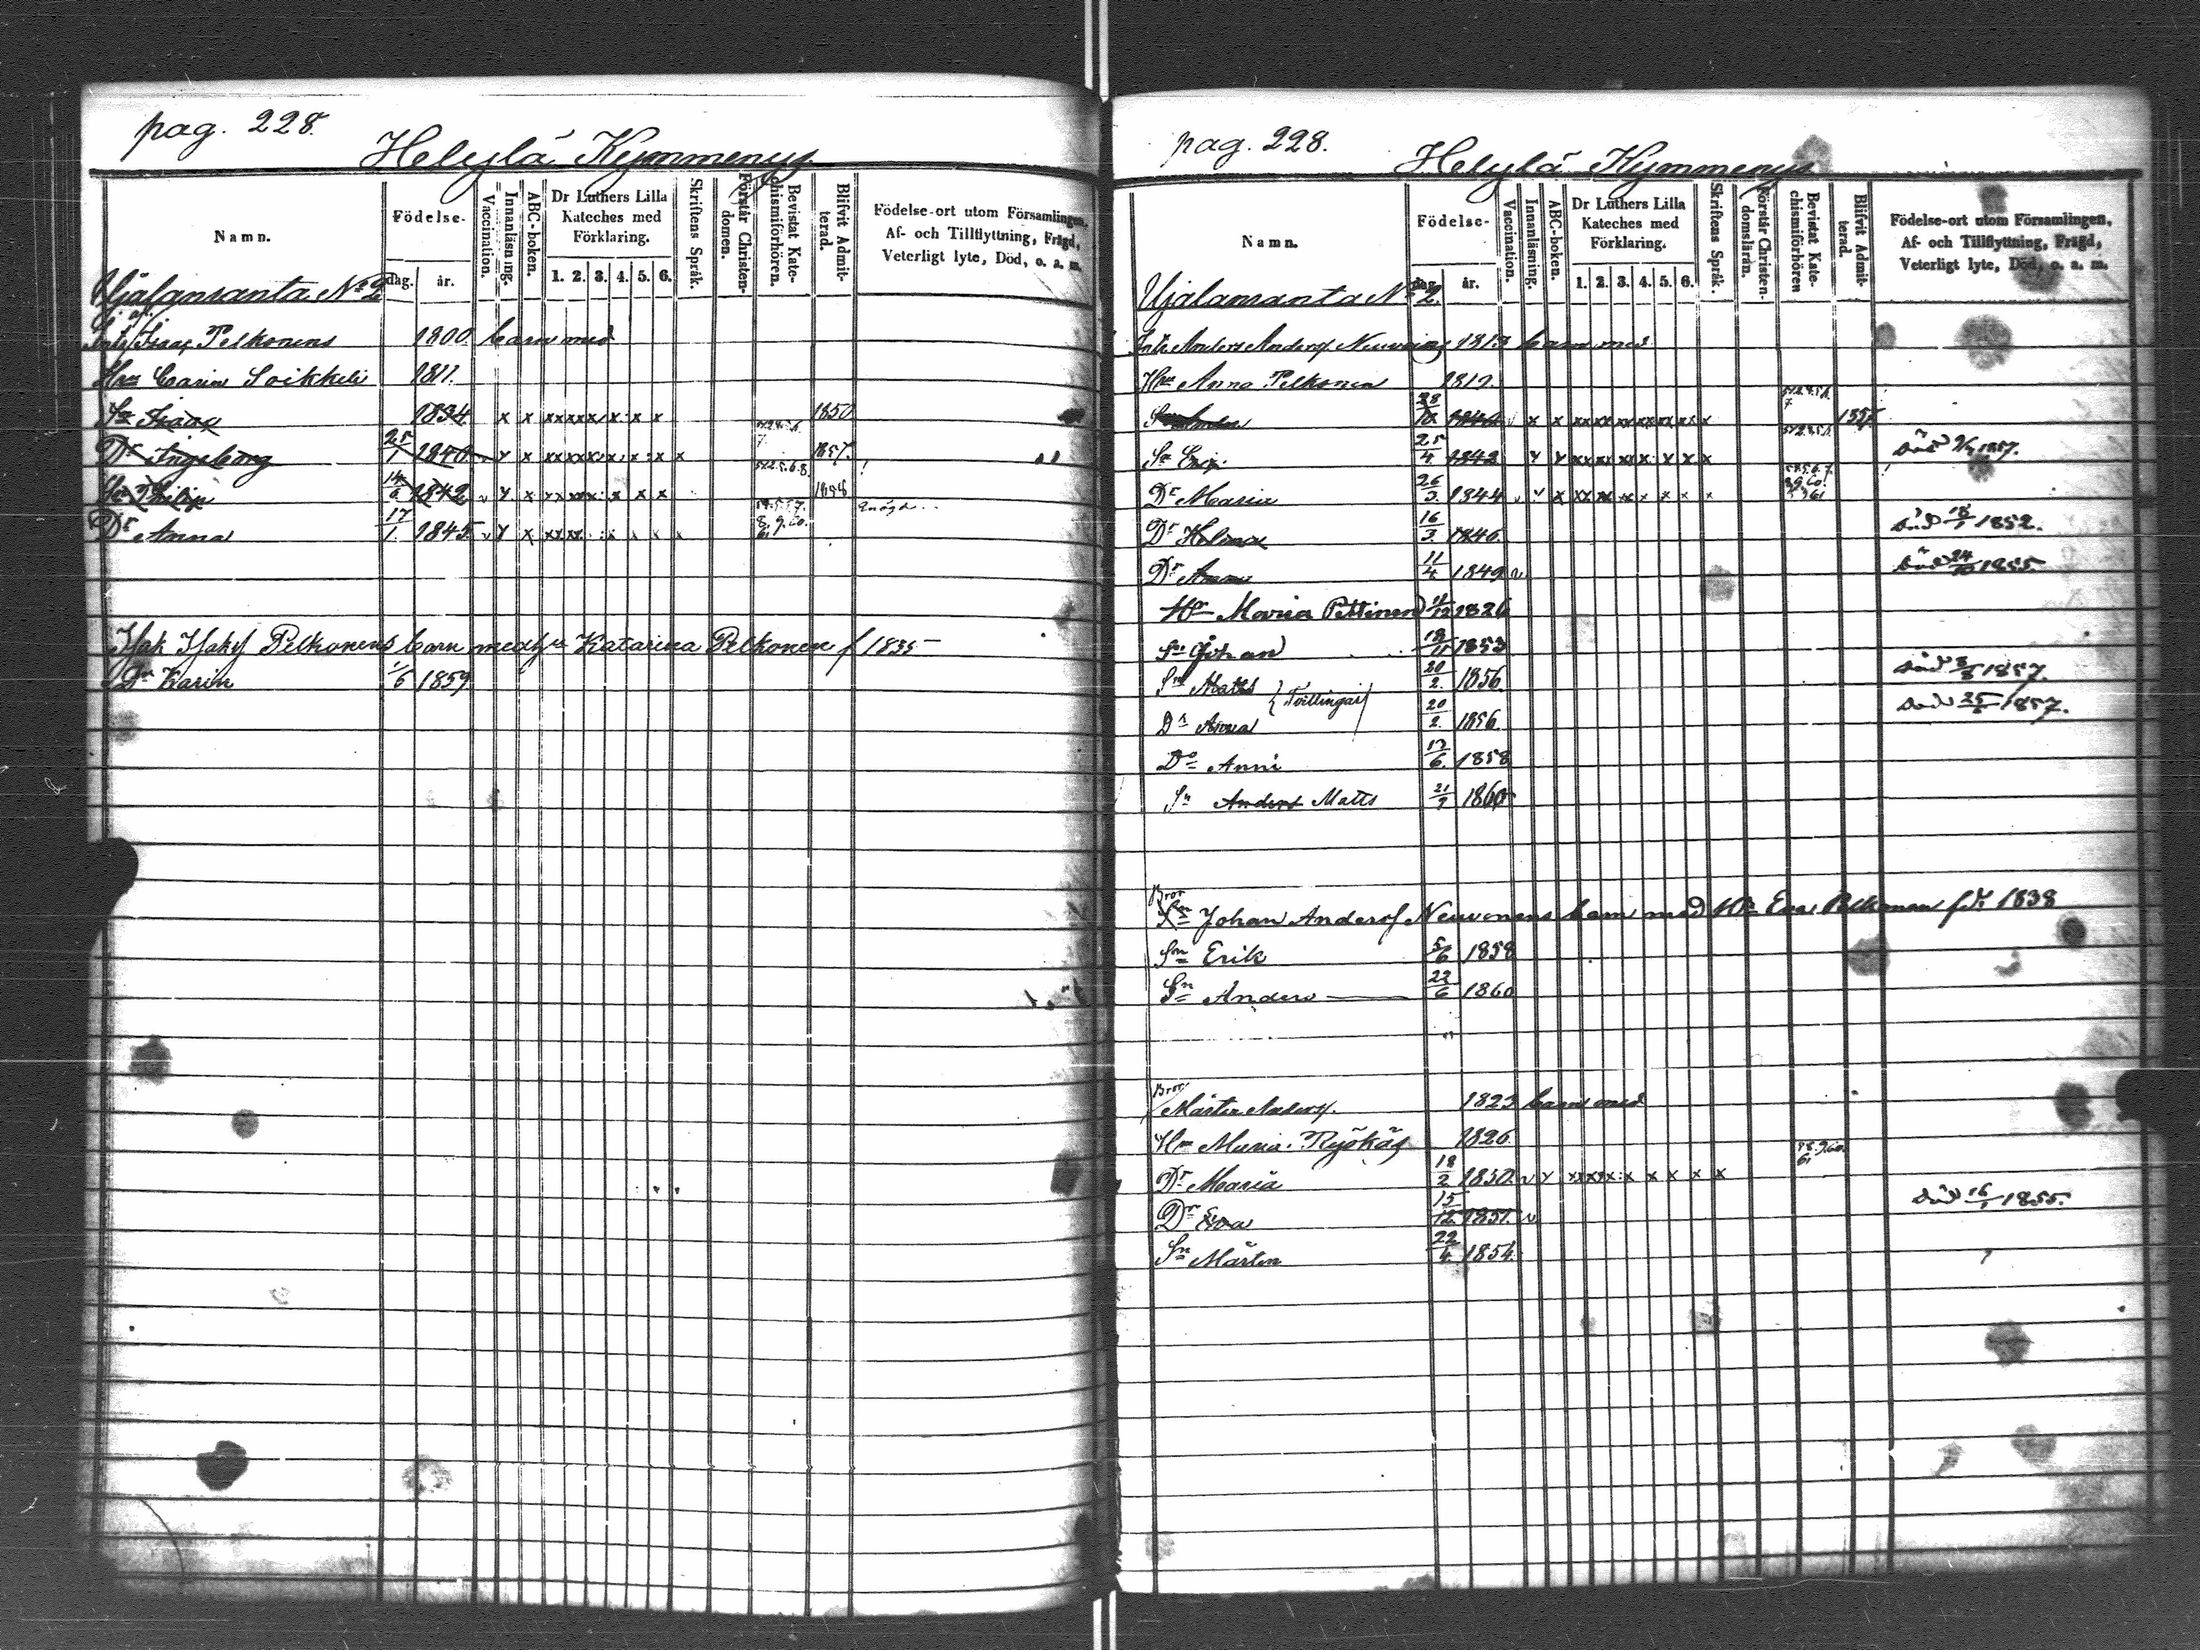 pag. 228.
Helylä Kymmenys
Namn.
Födelse-
dag.
år.
Vaccination.
Innanläsning.
ABC-boken.
Dr Luthers Lilla
Kateches med
Förklaring.
1. 2. 3. 4. 5. 6.
Skriftens Språk.
Förstår Christen-
domen.
Bevistat Kate-
chismiförhören.
Blifvit Admit-
terad.
Födelse-ort utom Församlingen,
Af- och Tillflyttning, Frägd,
Veterligt lyte, Död, o. a. m.
Ujalansanta No 2
Isaac Pelkonens 1800 barn med
Hru Carin Soikkeli 1811.
Sn Isaac 1834. x x x x x x x x x 1850
Dr Ingeborg 25/1 1840 x x x x x x x x x 1857.
Sn Philip 14/6 1842 x x x x x x x x 1858
Dr Anna 17/1 1845 x x x x x
Isak Isaksf Pelkonens barn med hu Katarina Pelkonen f 1835
Dr Karin 1/6 1859
pag. 228.
Helylä Kymmenys
Namn.
Födelse-
dag.
år.
Vaccination.
Innanläsning.
ABC-boken.
Dr Luthers Lilla
Kateches med
Förklaring.
1. 2. 3. 4. 5. 6.
Skriftens Språk.
Förstår Christen-
domsläran.
Bevistat Kate-
chismiförhören
Blifvit Admit-
terad.
Födelse-ort utom Församlingen,
Af- och Tillflyttning, Frägd,
Veterligt lyte, Död, o. a. m.
Ujalansanta No 2.
Anders Andersf 1813 barn med
Hru Anna Pelkonen
28/10
Sn Eric 25/4 1842 död 1857.
Dr Maria 26/3 1844
Dr Helena 16/3 1846 död 18/1 1852.
Dr Anna 11/4 1849 död 24/10 1855.
Hu Maria Pettinen 1826
Sn Johan 1853
Sn Matts 20/2 1856 död 1857.
{Tvillingar}
Dr Anna 20/2 1856 död 1857.
Dr Anni 17/6 1858
Sn Anders Matts 1860
Bror
Johan Andersf Neuvonens barn med Hu Eva Pelkonen född 1838
Sn Erik 5/6 1858
Sn Anders 22/6 1860
Bror
Mårten Andersf. 1823 barn med
Hru Maria 1826
Dr Maria 18/2 1850 x x x x x x x x
Dr Eva 15/12 1851. död 16/1 1855.
Sn Mårten 22/4 1854.